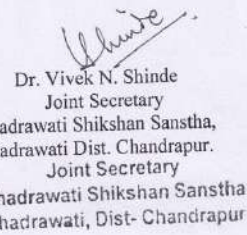 Shinde
Dr. Vivek N. Shinde
Joint Secretary
adrawati Shikshan Sanstha,
adrawati Dist. Chandrapur.
Joint Secretary
hadrawati Shikshan Sanstha
hadrawati, Dist- Chandrapur